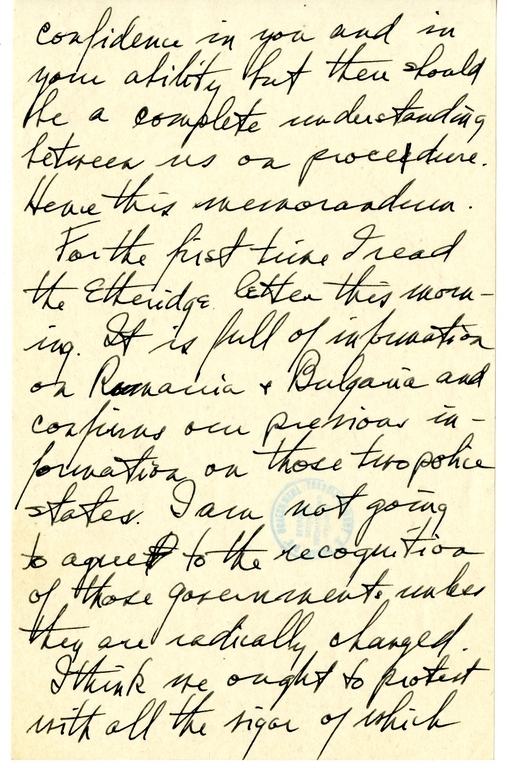 confidence in you and in
your ability but there should
be a complete understanding
between us on procedure.
Hence this memorandum.
For the first time I read
the Etheridge letter this morn-
ing. It is full of information
on Rumania & Bulgaria and
confirms our previous in-
formation on those two police
states. I am not going
to agree to the recognition
of those governments unless
they are radically changed.
I think we ought to protest
with all the vigor of which